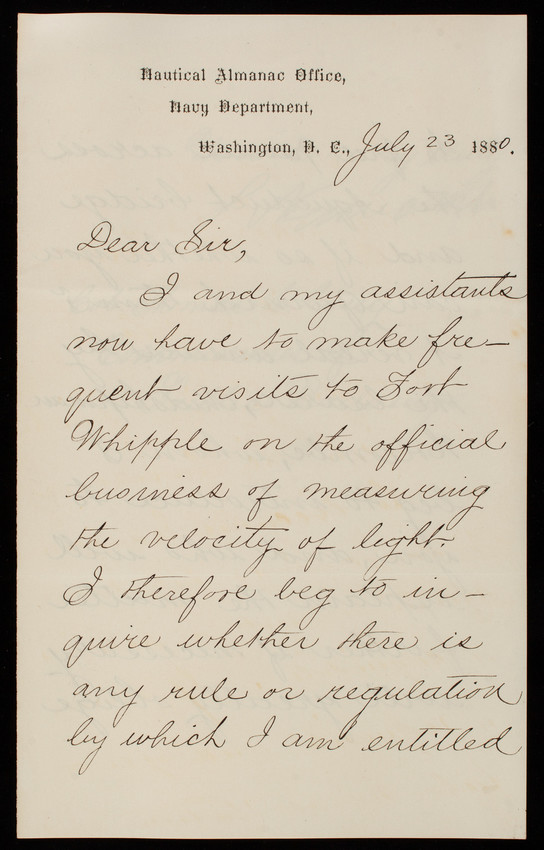 Nautical Almanac Office,
Navy Department,
Washington, D. C., July 23 1880.
Dear Sir,
I and my assistants
now have to make fre-
quent visits to Fort
Whipple on the official
business of measuring
the velocity of light.
I therefore beg to in-
quire whether there is
any rule or regulation
by which I am entitled